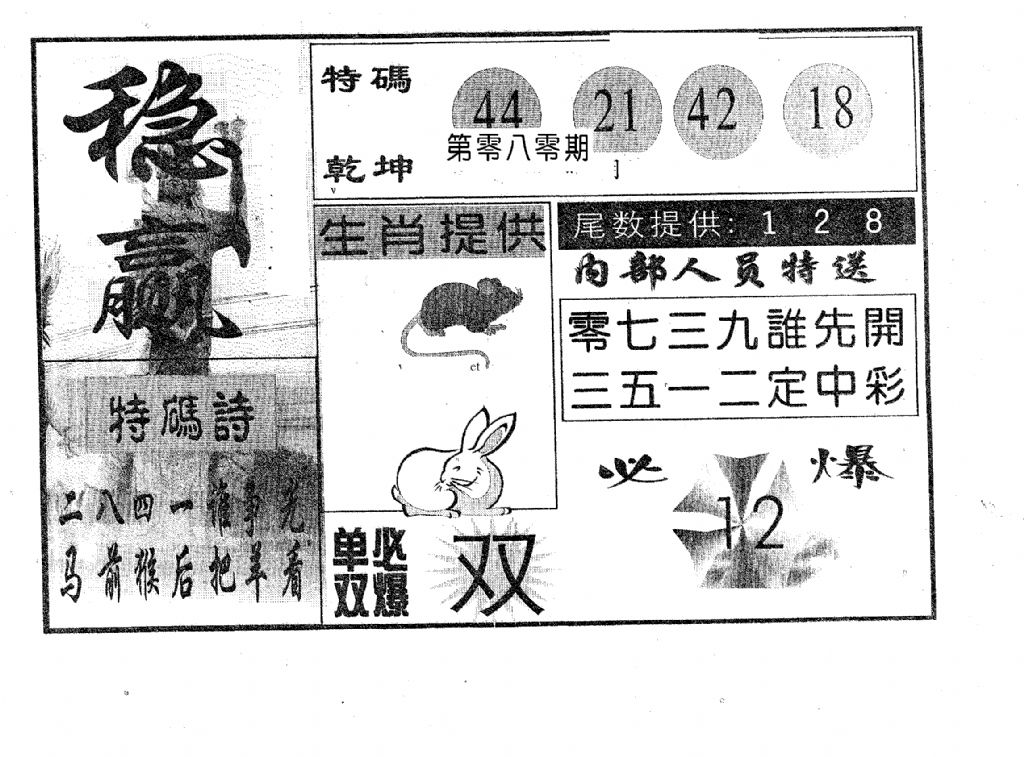 稳赢
特碼诗
二八四一誰爭先
马前猴后把羊看
特碼
乾坤
44 21 42 18
第零八零期
生肖提供
单双必爆
双
尾数提供: 1 2 8
内部人员特送
零七三九誰先開
三五一二定中彩
必爆
12